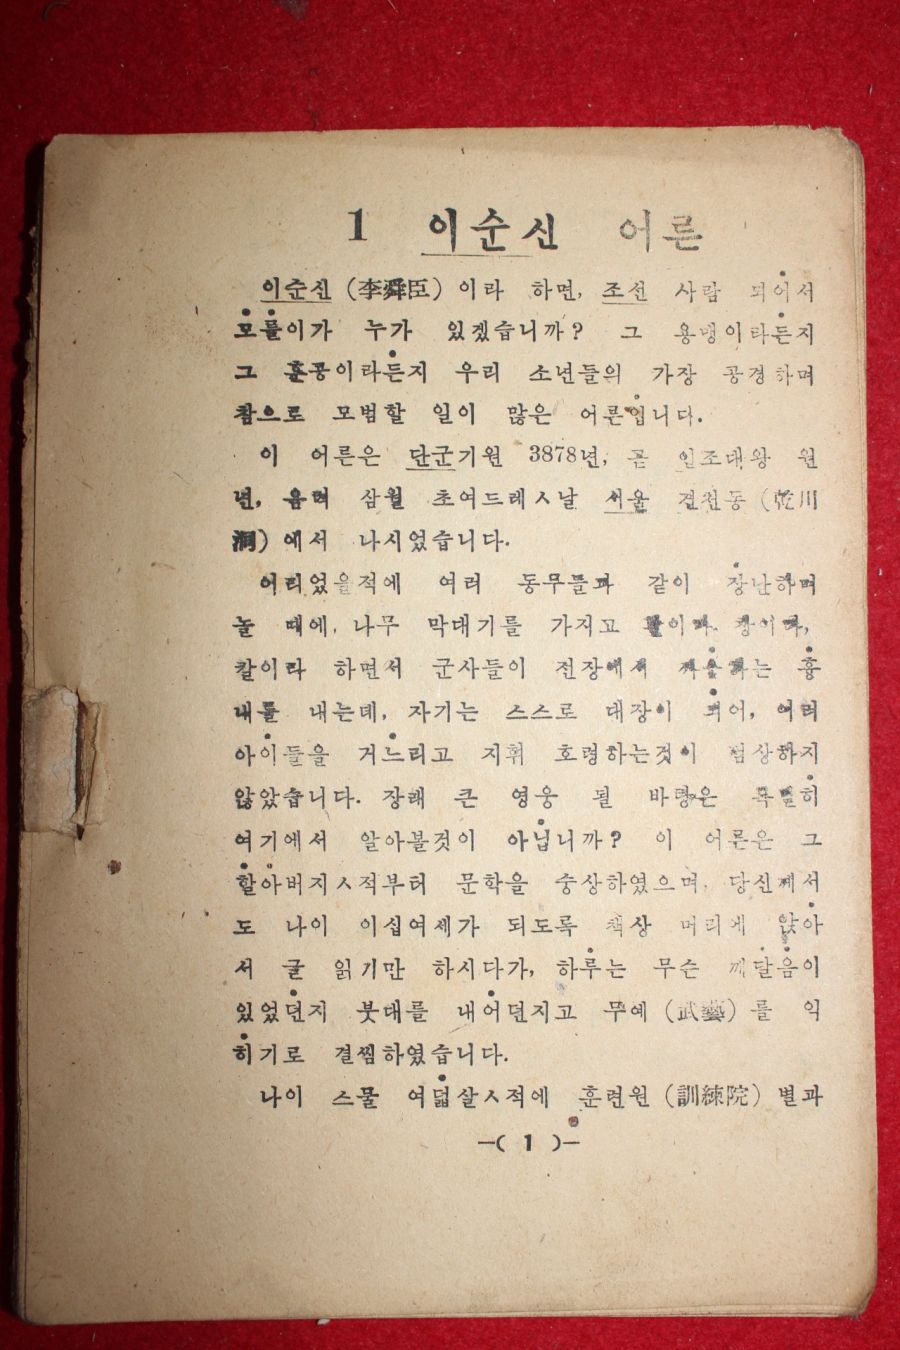 1 이순신 어른
이순신 (李舜臣) 이라 하면, 조선 사람 되어서
모를이가 누가 있겠습니까? 그 용맹이라든지
그 훈공이라든지 우리 소년들의 가장 공경하며
참으로 모범할 일이 많은 어른입니다.
이 어른은 단군기원 3878년, 곧 인조대왕 원
년, 음력 삼월 초여드레ㅅ날 서울 건천동 (乾川
洞) 에서 나시었습니다.
어리었을적에 여러 동무들과 같이 장난하며
놀 때에, 나무 막대기를 가지고 활이라, 창이라,
칼이라 하면서 군사들이 전장에서 싸움하는 흉
내를 내는데, 자기는 스스로 대장이 되어, 여러
아이들을 거느리고 지휘 호령하는것이 범상하지
않았습니다. 장래 큰 영웅 될 바탕은 특별히
여기에서 알아볼것이 아닙니까? 이 어른은 그
할아버지ㅅ적부터 문학을 숭상하였으며, 당신께서
도 나이 이십여세가 되도록 책상 머리에 앉아
서 글 읽기만 하시다가, 하루는 무슨 깨달음이
있었던지 붓대를 내어던지고 무예 (武藝) 를 익
히기로 결찜하였습니다.
나이 스물 여덟살ㅅ적에 훈련원 (訓練院) 별과
—( 1 )—